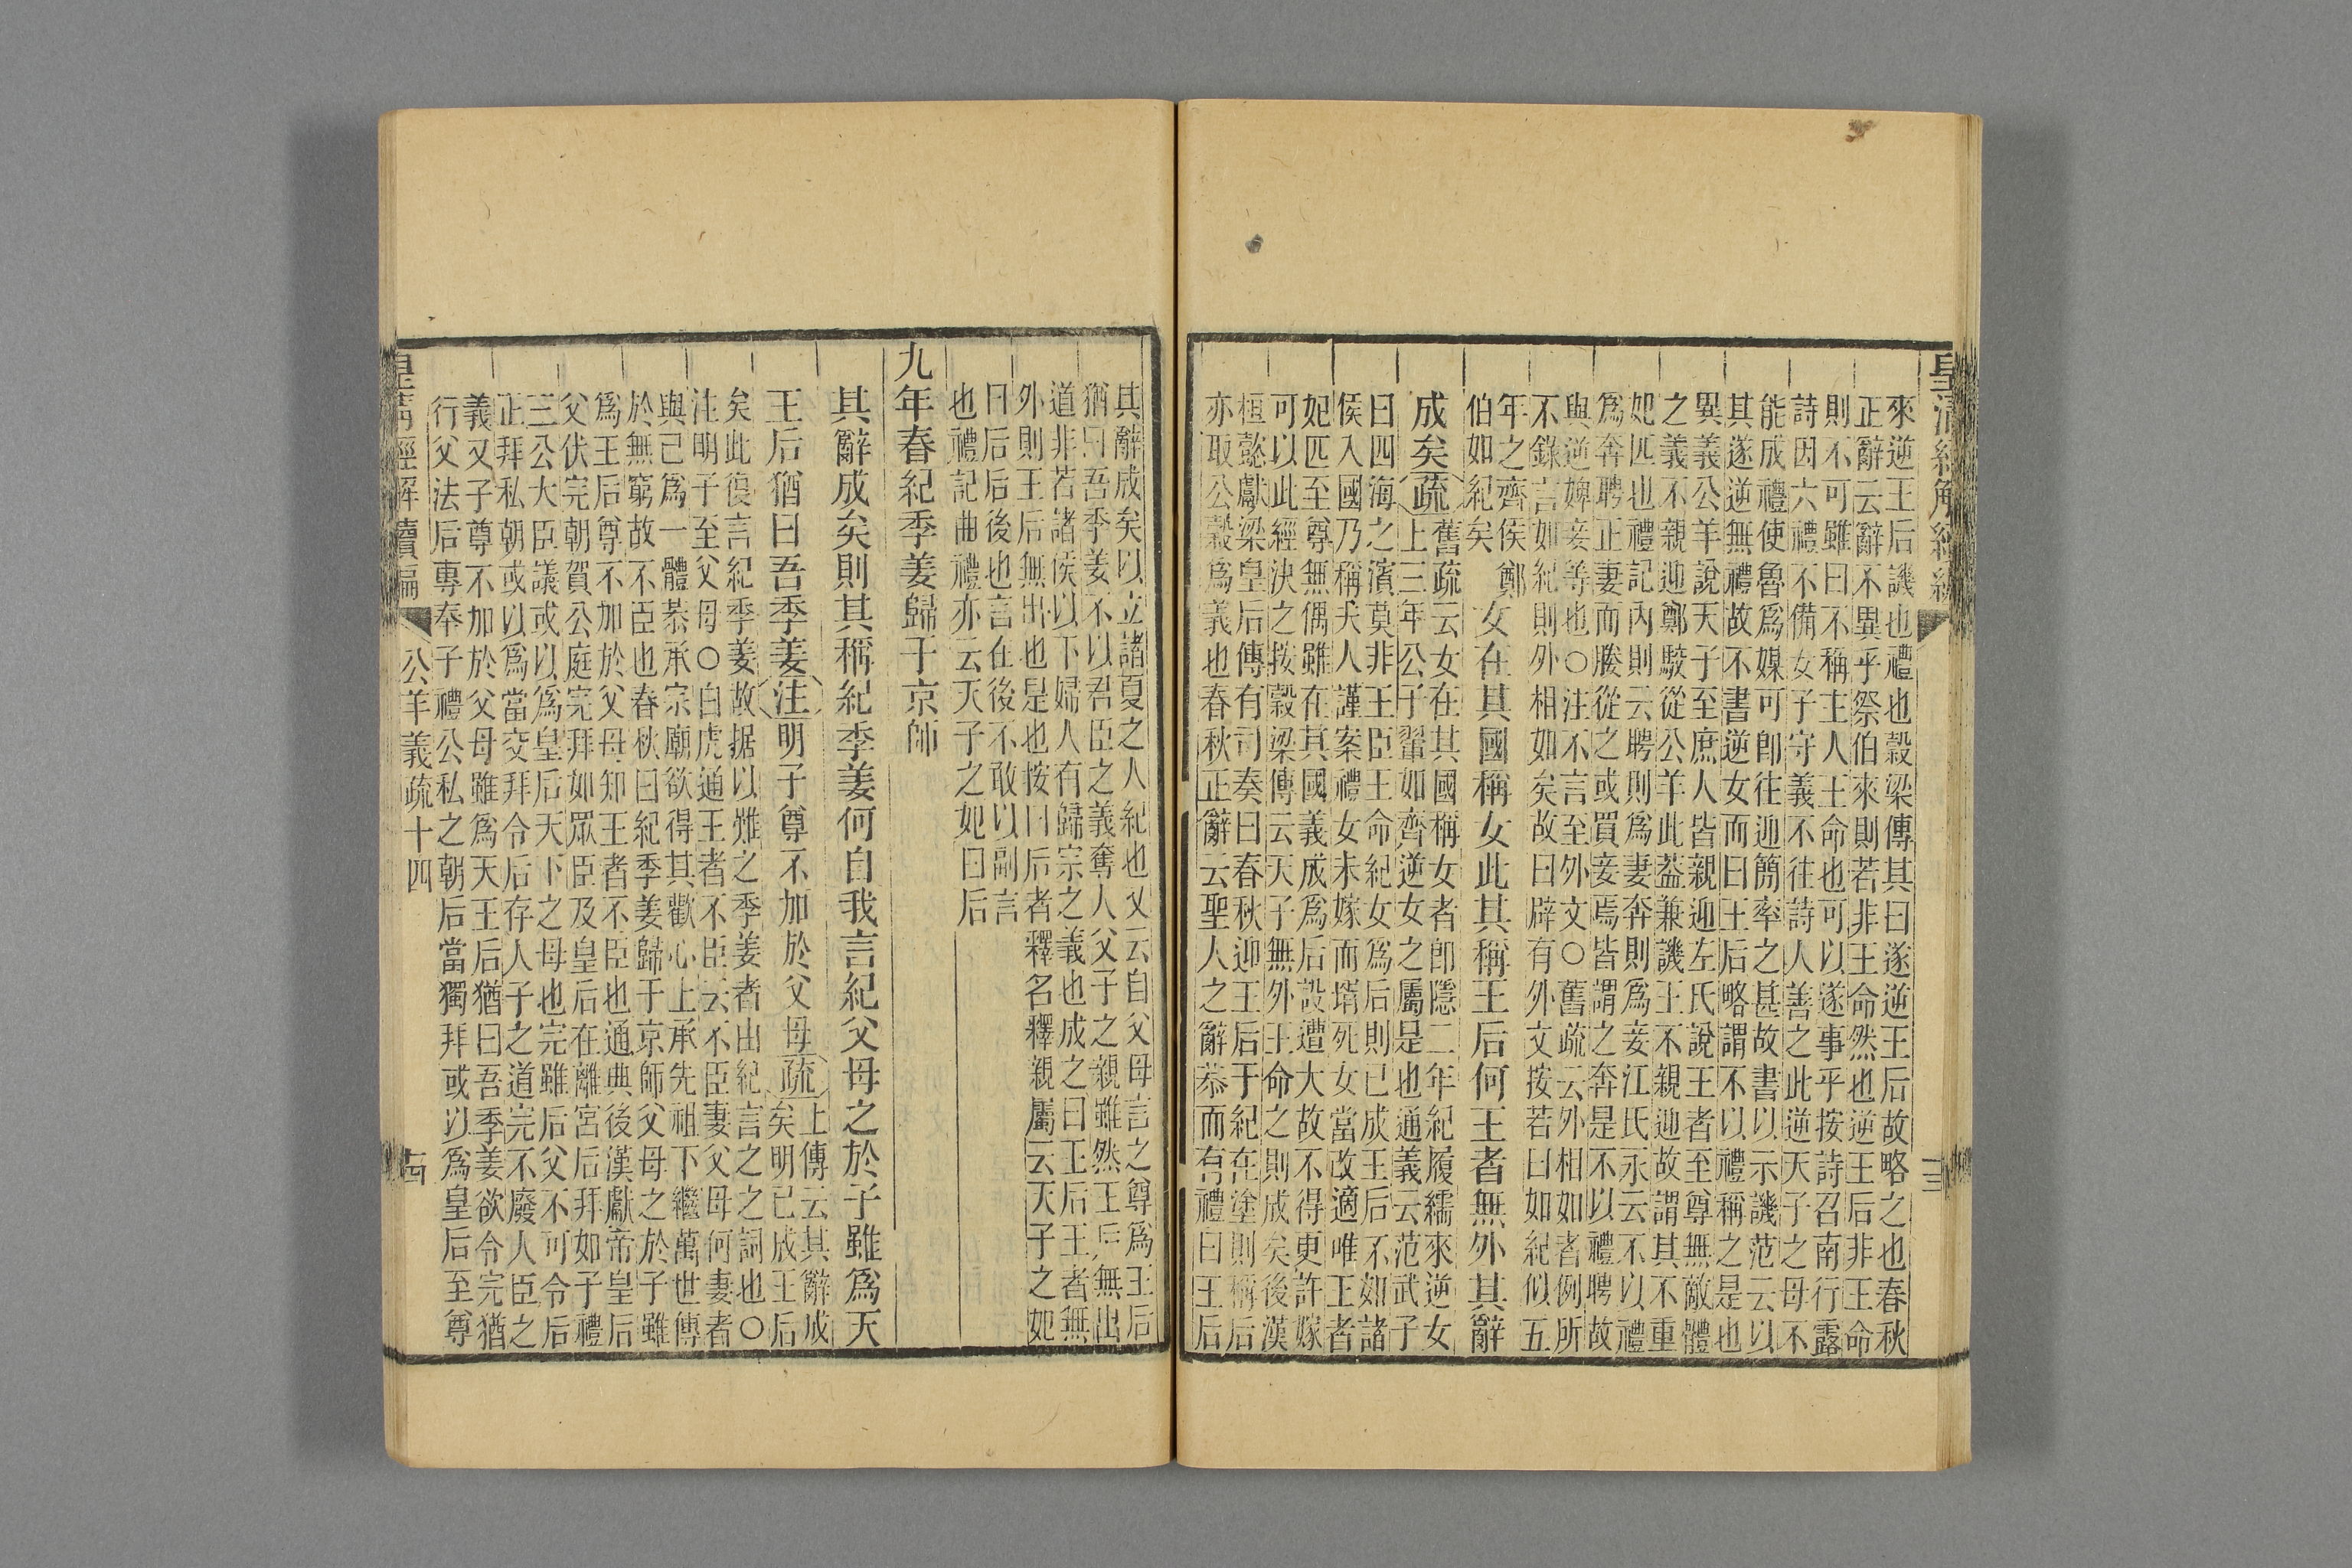 來逆王后譏也禮也穀梁傳其曰遂逆王后故略之也春秋
正辭云辭不異乎祭伯來則若非王命然也逆王后非王命
則不可雖曰不稱主人王命也可以遂事乎按詩召南行露
詩因六禮不備女子守義不往詩人善之此逆天子之母不
能成禮使魯爲媒可卽往迎簡率之甚故書以示譏范云以
其遂逆無禮故不書逆女而曰王后略謂不以禮稱之是也
異義公羊說天子至庶人皆親迎左氏說王者至尊無敵體
之義不親迎鄭駮從公羊此葢兼譏王不親迎故謂其不重
妃匹也禮記內則云聘則爲妻奔則爲妾江氏永云不以禮
爲奔聘正妻而媵從之或買妾焉皆謂之奔是不以禮聘故
與逆婢妾等也○注不言至外文○舊疏云外相如者例所
不錄言如紀則外相如矣故曰辟有外文按若曰如紀似五
年之齊侯鄭
伯如紀矣
女在其國稱女此其稱王后何王者無外其辭
成矣疏
舊疏云女在其國稱女者卽隱二年紀履繻來逆女
上三年公子翬如齊逆女之屬是也通義云范武子
曰四海之濱莫非王臣王命紀女爲后則已成王后不如諸
侯入國乃稱夫人謹案禮女未嫁而壻死女當改適唯王者
妃匹至尊無偶雖在其國義成爲后設遭大故不得更許嫁
可以此經決之按穀梁傳云天子無外王命之則成矣後漢
桓懿獻梁皇后傳有司奏曰春秋迎王后于紀在塗則稱后
亦取公穀爲義也春秋正辭云聖人之辭恭而有禮曰王后
其辭成矣以立諸夏之人紀也又云自父母言之尊爲王后
猶曰吾季姜不以君臣之義奪人父子之親雖然王后無出
道非若諸侯以下婦人有歸宗之義也成之曰王后王者無
外則王后無出也是也按曰后者釋名釋親屬云天子之妃
曰后后後也言在後不敢以副言
也禮記曲禮亦云天子之妃曰后
九年春紀季姜歸于京師
其辭成矣則其稱紀季姜何自我言紀父母之於子雖爲天
王后猶曰吾季姜注明子尊不加於父母疏
上傳云其辭成
矣明已成王后
矣此復言紀季姜故据以難之季姜者由紀言之之詞也○
注明子至父母○白虎通王者不臣云不臣妻父母何妻者
與已爲一體恭承宗廟欲得其歡心上承先祖下繼萬世傳
於無窮故不臣也春秋曰紀季姜歸于京師父母之於子雖
爲王后尊不加於父母知王者不臣也通典後漢獻帝皇后
父伏完朝賀公庭完拜如眾臣及皇后在離宮后拜如子禮
三公大臣議或以爲皇后天下之母也完雖后父不可令后
正拜私朝或以爲當交拜令后存人子之道完不廢人臣之
義又子尊不加於父母雖爲天王后猶曰吾季姜欲令完猶
行父法后專奉子禮公私之朝后當獨拜或以爲皇后至尊
公羊義疏十四